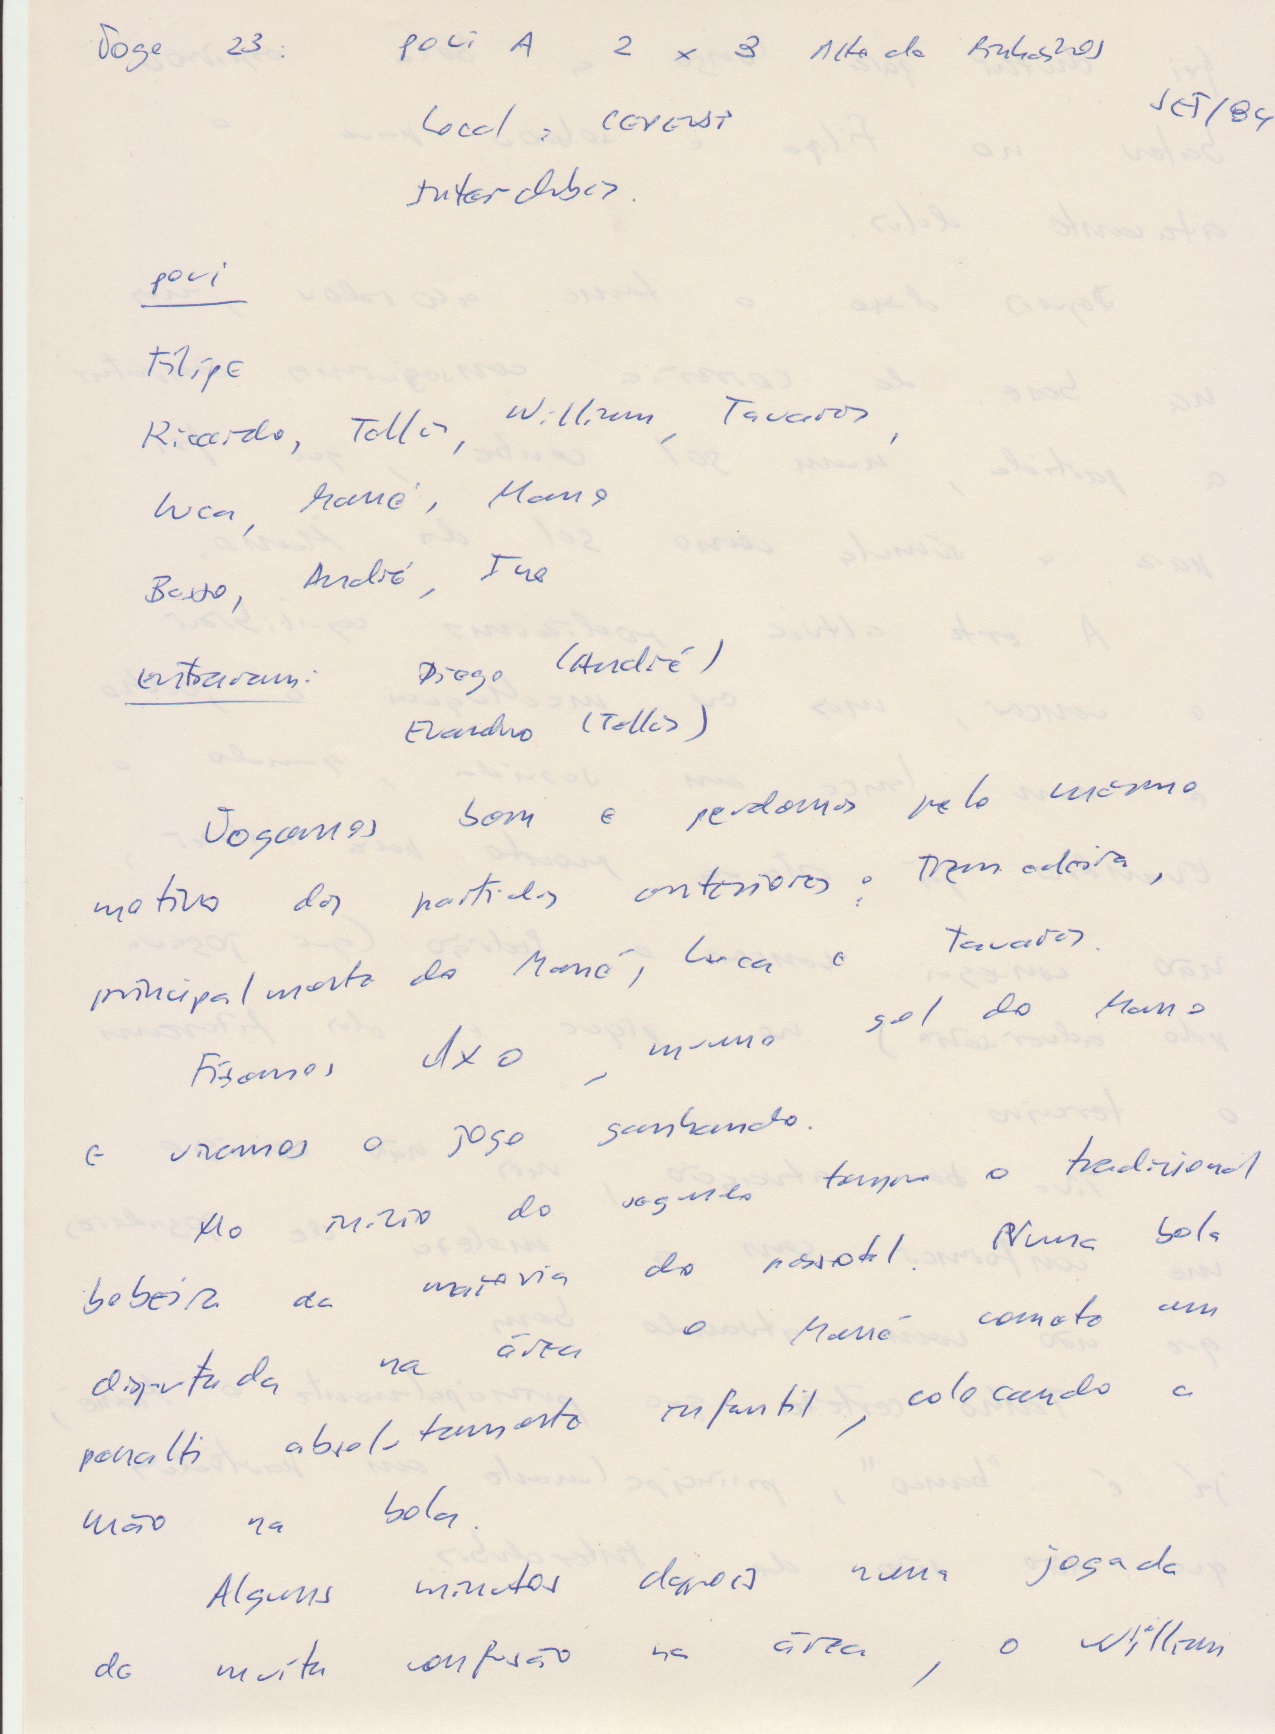 Jogo 23: poli A 2 x 3 Alto de Pinheiros
SET/84
Local: CEPEUSP
Interclubes.
poli
Filipe
Riccardo, Tellis, William, Tavares,
Luca, Mané, Mano
Basso, André, Ino
entraram: Diego (André)
Evandro (Tellis)
Jogamos bem e perdemos pelo mesmo
motivo das partidas anteriores: tremedeira,
principalmente do Mané, Luca e Tavares.
Fizemos 1x0, num gol do Mano
e viramos o jogo ganhando.
No início do segundo tempo o tradicional
bobeira da maioria do pessoal. Numa bola
disputada na área o Mané comete um
penalti absolutamente infantil, colocando a
mão na bola.
Alguns minutos depois numa jogada
de muita confusão na área, o William